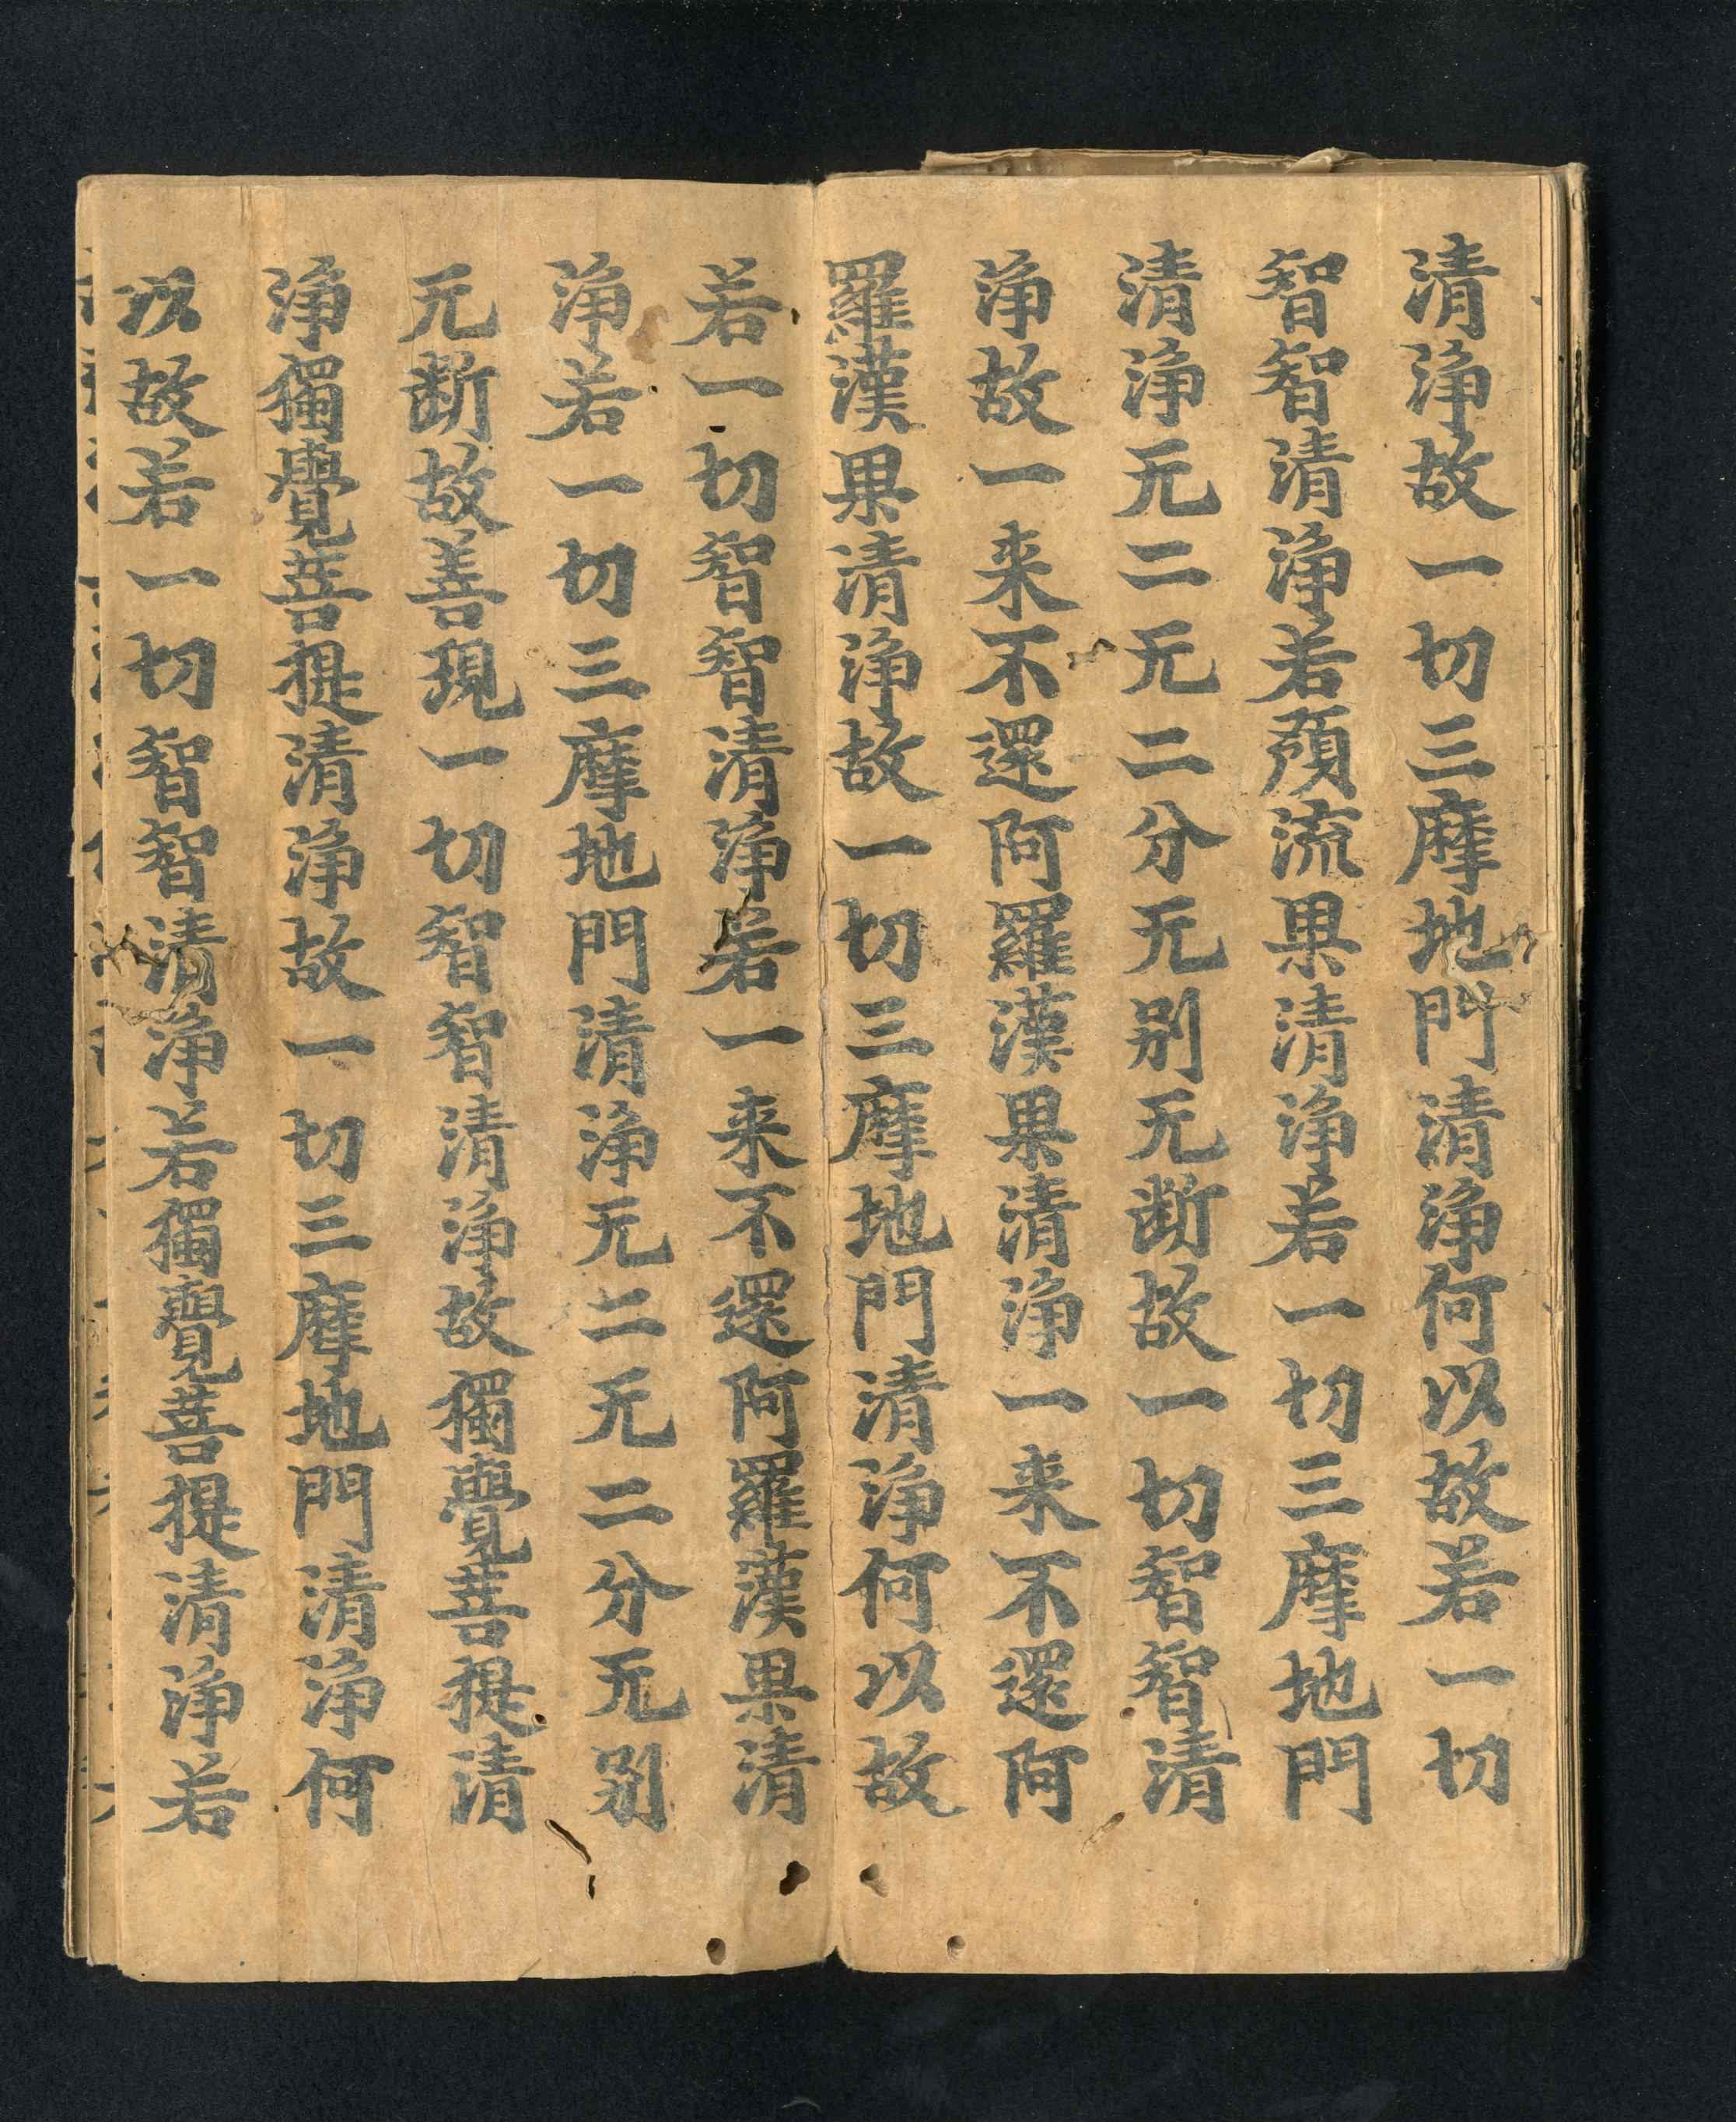 清淨故一切三摩地門清淨何以故若一切
智智清淨若預流果清淨若一切三摩地門
清淨无二无二分无别无断故一切智智清
淨故一来不還阿羅漢果清淨一来不還阿
羅漢果清淨故一切三摩地門清淨何以故
若一切智智清淨若一来不還阿羅漢果清
淨若一切三摩地門清淨无二无二分无别
无断故善現一切智智清淨故獨覺菩提清
淨獨覺菩提清淨故一切三摩地門清淨何
以故若一切智智清淨若獨覺菩提清淨若